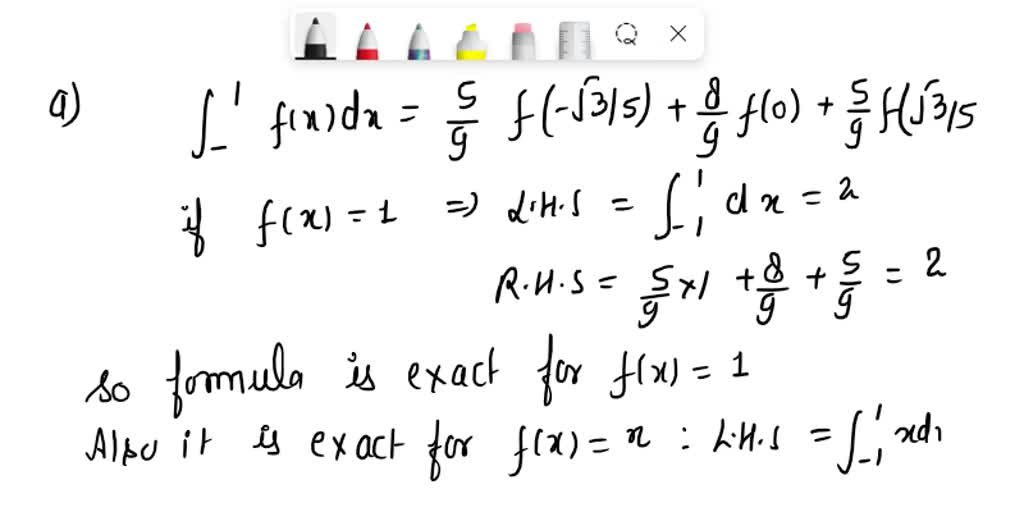 a) ∫_-^1 f(x)dx = 5/9 f(-√3/5) + 8/9 f(0) + 5/9 f(√3/5
if f(x) = 1 => L.H.S = ∫_-1^1 dx = 2
R.H.S = 5/9 x1 + 8/9 + 5/9 = 2
so formula is exact for f(x) = 1
Also it is exact for f(x) = x : L.H.S = ∫_-1^1 xd